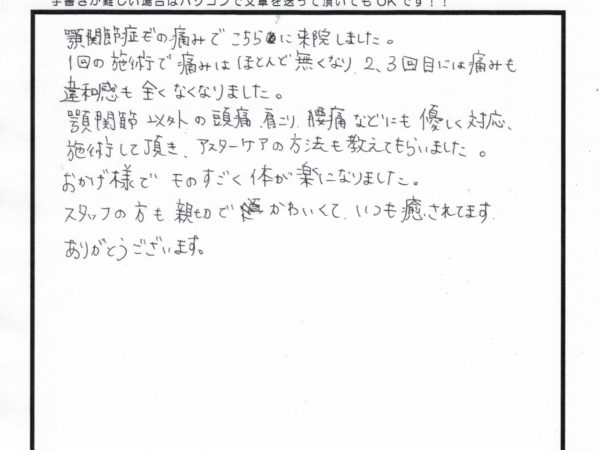 手書きが難しい場合はパソコンで文章を送って頂いてもOKです！！
顎関節症の痛みでこちらに来院しました。
1回の施術で痛みはほとんど無くなり、2、3回目には痛みも
違和感も全くなくなりました。
顎関節以外の頭痛、肩こり、腰痛などにも優しく対応、
施術して頂き、アスターケアの方法も教えてもらいました。
おかげ様でものすごく体が楽になりました。
スタッフの方も親切でかわいくて、いつも癒されてます。
ありがとうございます。